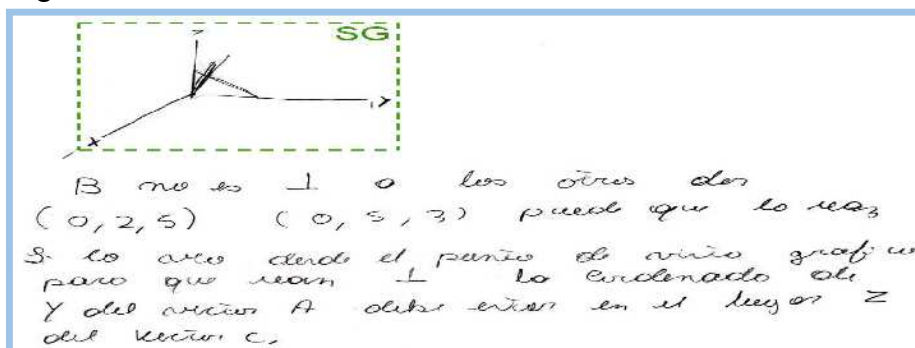 SG
z
y
x
B no es ⊥ a los otros dos
(0,2,5) (0,5,3) puede que lo sea,
Si lo creo desde el punto de vista gráfico
para que sean ⊥ la cordenada de
Y del vector A debe estar en el lugar Z
del vector C,